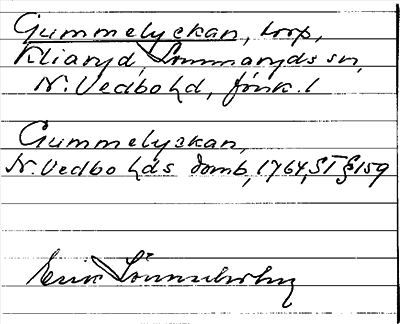 Gummelyckan, torp,
Kliaryd, Lommaryds sn,
N. Vedbo hd, Jönk. l
Gummelyckan,
N. Vedbo hds domb, 1764, ST § 159
Erik